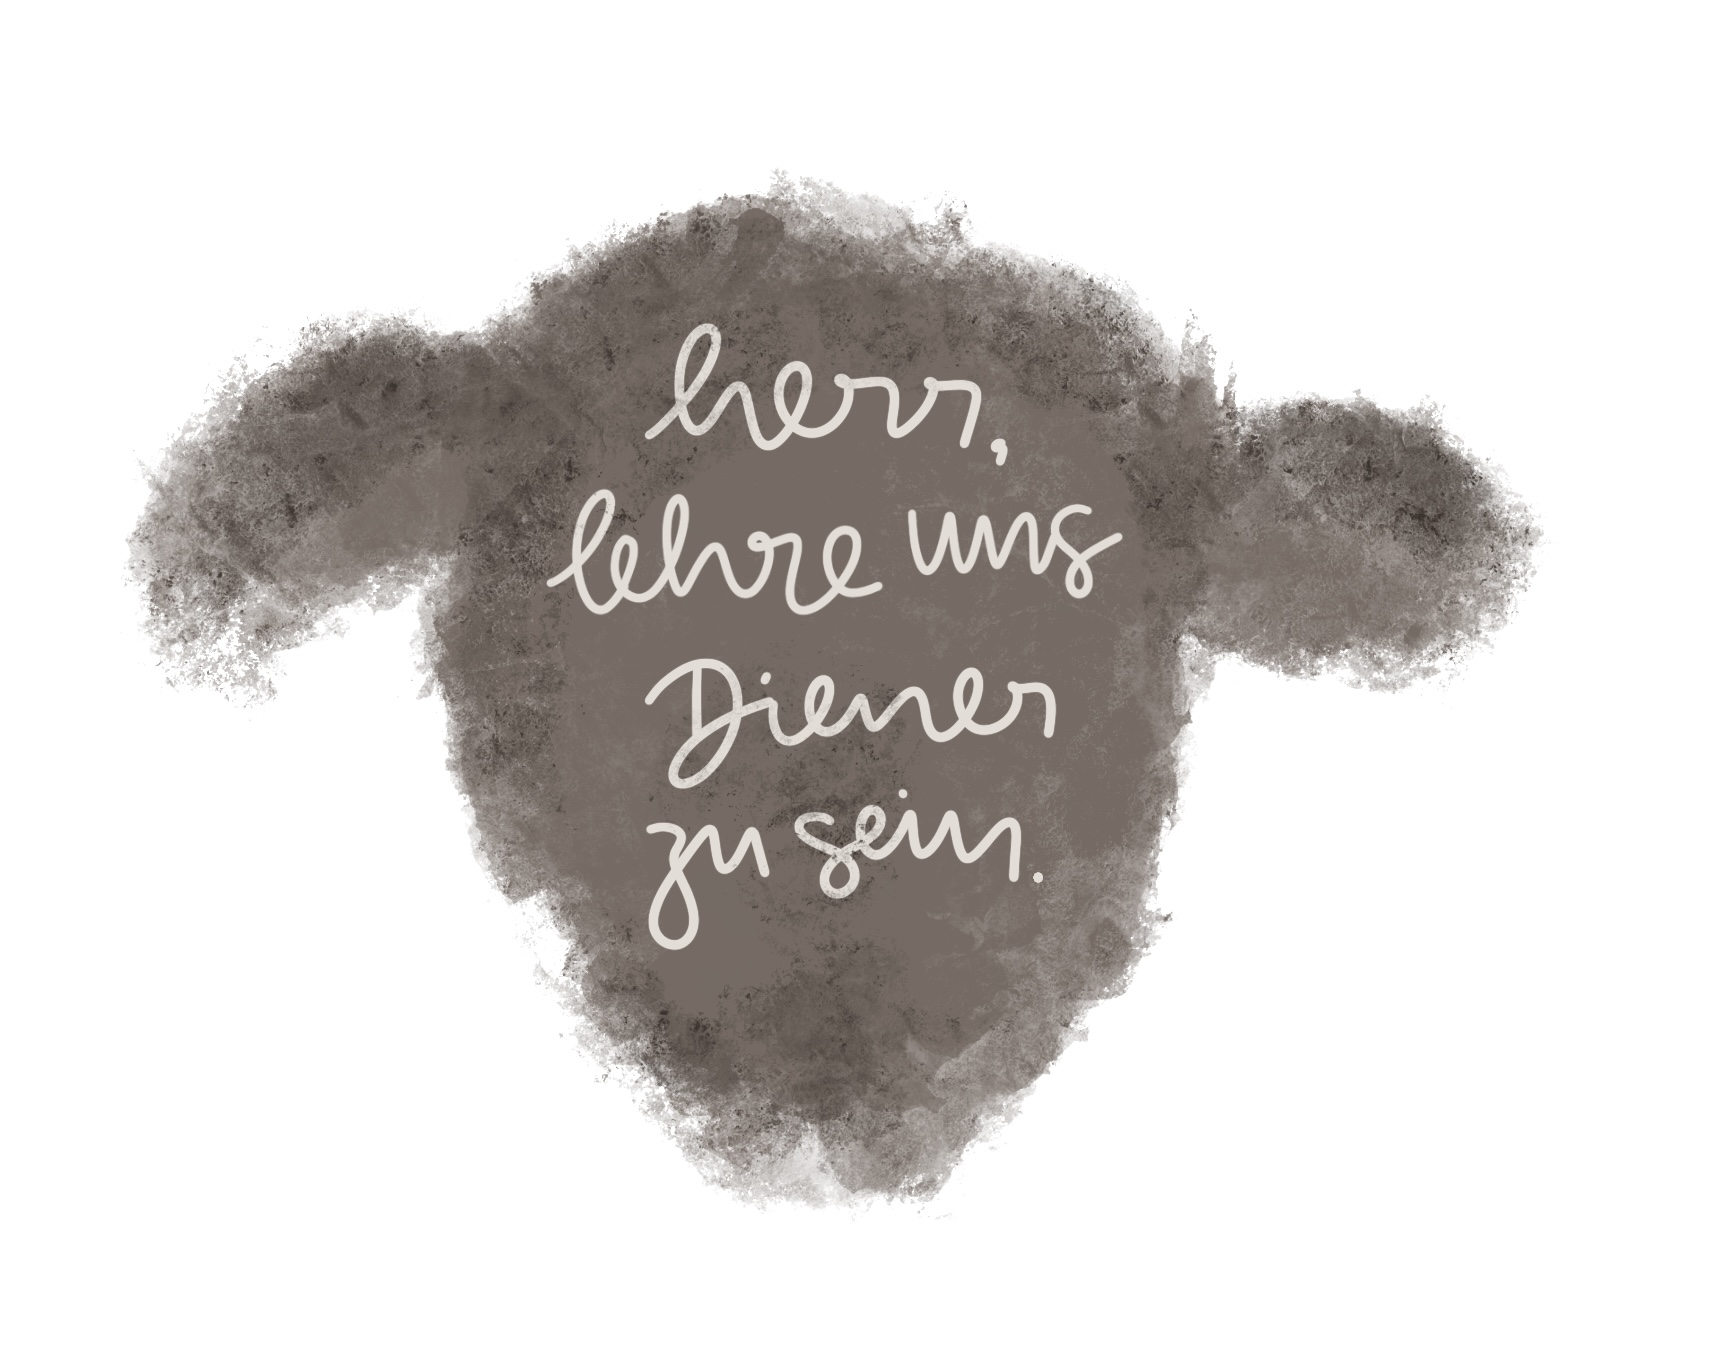 herr,
lehre uns
Diener
zu sein.